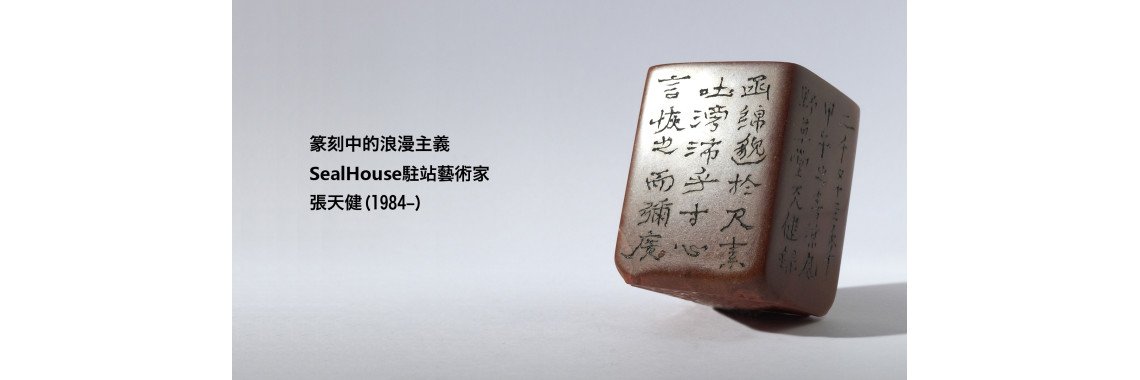 篆刻中的浪漫主義
SealHouse駐站藝術家
張天健 (1984–)
函綿邈於尺素
吐滂沛乎寸心
言恢之而彌廣
天健錄